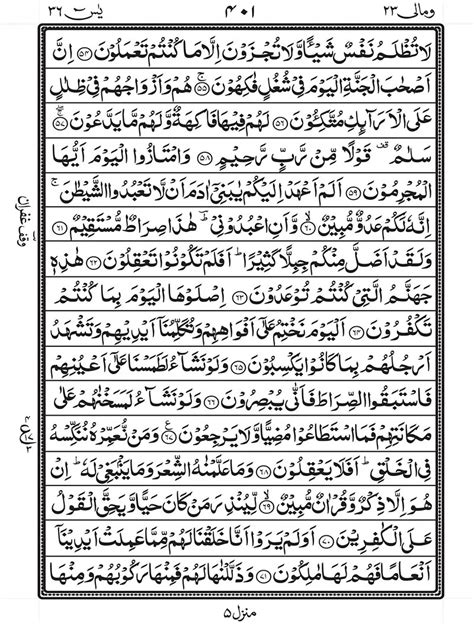 ومالی ٢٣ ٤٠١ یٰسٓ ٣٦
لَا تُظْلَمُ نَفْسٌ شَيْـًٔا وَّلَا تُجْزَوْنَ اِلَّا مَا كُنْتُمْ تَعْمَلُوْنَ ﴿٥٤﴾ اِنَّ
اَصْحٰبَ الْجَنَّةِ الْيَوْمَ فِيْ شُغُلٍ فٰكِهُوْنَ ﴿٥٥﴾ۚ هُمْ وَاَزْوَاجُهُمْ فِيْ ظِلٰلٍ
عَلَى الْاَرَآئِكِ مُتَّكِـُٔوْنَ ﴿٥٦﴾ لَهُمْ فِيْهَا فَاكِهَةٌ وَّلَهُمْ مَّا يَدَّعُوْنَ ﴿٥٧﴾
سَلٰمٌ ۣ قَوْلًا مِّنْ رَّبٍّ رَّحِيْمٍ ﴿٥٨﴾ وَامْتَازُوا الْيَوْمَ اَيُّهَا
الْمُجْرِمُوْنَ ﴿٥٩﴾ اَلَمْ اَعْهَدْ اِلَيْكُمْ يٰبَنِيْٓ اٰدَمَ اَنْ لَّا تَعْبُدُوا الشَّيْطٰنَ ۚ
اِنَّهٗ لَكُمْ عَدُوٌّ مُّبِيْنٌ ﴿٦٠﴾ وَّاَنِ اعْبُدُوْنِيْ ؕ هٰذَا صِرَاطٌ مُّسْتَقِيْمٌ ﴿٦١﴾
وَلَقَدْ اَضَلَّ مِنْكُمْ جِبِلًّا كَثِيْرًا ؕ اَفَلَمْ تَكُوْنُوْا تَعْقِلُوْنَ ﴿٦٢﴾ هٰذِهٖ
جَهَنَّمُ الَّتِيْ كُنْتُمْ تُوْعَدُوْنَ ﴿٦٣﴾ اِصْلَوْهَا الْيَوْمَ بِمَا كُنْتُمْ
تَكْفُرُوْنَ ﴿٦٤﴾ اَلْيَوْمَ نَخْتِمُ عَلٰٓى اَفْوَاهِهِمْ وَتُكَلِّمُنَآ اَيْدِيْهِمْ وَتَشْهَدُ
اَرْجُلُهُمْ بِمَا كَانُوْا يَكْسِبُوْنَ ﴿٦٥﴾ وَلَوْ نَشَآءُ لَطَمَسْنَا عَلٰٓى اَعْيُنِهِمْ
فَاسْتَبَقُوا الصِّرَاطَ فَاَنّٰى يُبْصِرُوْنَ ﴿٦٦﴾ وَلَوْ نَشَآءُ لَمَسَخْنٰهُمْ عَلٰى
مَكَانَتِهِمْ فَمَا اسْتَطَاعُوْا مُضِيًّا وَّلَا يَرْجِعُوْنَ ﴿٦٧﴾ وَمَنْ نُّعَمِّرْهُ نُنَكِّسْهُ
فِي الْخَلْقِ ؕ اَفَلَا يَعْقِلُوْنَ ﴿٦٨﴾ وَمَا عَلَّمْنٰهُ الشِّعْرَ وَمَا يَنْۢبَغِيْ لَهٗ ؕ اِنْ
هُوَ اِلَّا ذِكْرٌ وَّقُرْاٰنٌ مُّبِيْنٌ ﴿٦٩﴾ لِّيُنْذِرَ مَنْ كَانَ حَيًّا وَّيَحِقَّ الْقَوْلُ
عَلَى الْكٰفِرِيْنَ ﴿٧٠﴾ اَوَلَمْ يَرَوْا اَنَّا خَلَقْنَا لَهُمْ مِّمَّا عَمِلَتْ اَيْدِيْنَآ
اَنْعَامًا فَهُمْ لَهَا مٰلِكُوْنَ ﴿٧١﴾ وَذَلَّلْنٰهَا لَهُمْ فَمِنْهَا رَكُوْبُهُمْ وَمِنْهَا
وقف غفران
منزل ٥